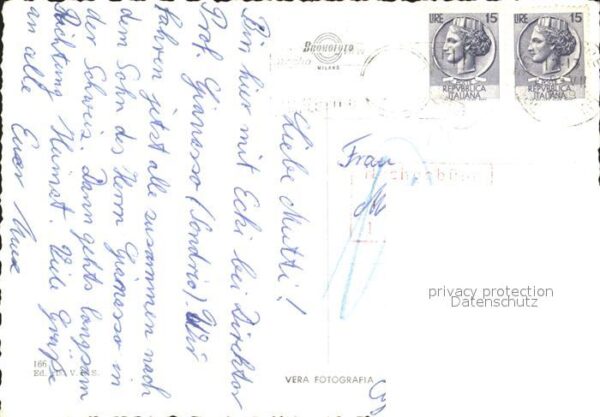 LIRE 15
REPVBBLICA
ITALIANA
LIRE 15
POSTE
REPVBBLICA
ITALIANA
Bromofoto
MILANO
Liebe Mutti!
Bin hier mit Ecki bei Direktor
Prof. (Sondrio). Wir
fahren jetzt alle zusammen nach
dem Sohn des Herrn in
der Schweiz. Dann gehts langsam
Richtung Heimat. Viele Grüße
an alle Euer
Frau
privacy protection
Datenschutz
166
VERA FOTOGRAFIA